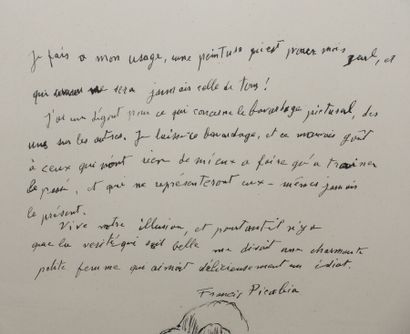 Je fais à mon usage, une peinture qui est pour moi seul, et
qui ne sera jamais celle de tous !
J'ai un dégout pour ce qui concerne le bavardage pictural, des
uns sur les autres. Je laisse ce bavardage, et ce mauvais goût
à ceux qui n'ont rien de mieux a faire qu'a trainer
le passé, et qui ne représenteront eux-mêmes jamais
le présent.
Vive votre illusion, et pourtant il n'y a
que la verité qui soit belle me disait une charmante
petite femme qui aimait délicieusement un idiot.
Francis Picabia